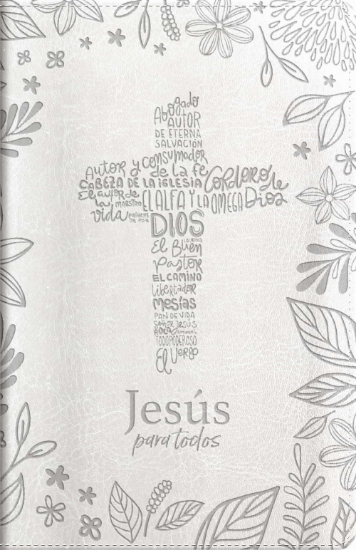 Abogado
AUTOR
DE ETERNA
SALVACIÓN
Autor y consumador
de la fe
CABEZA DE LA IGLESIA
Cordero de
Dios
El autor de
la vida
maestro
EL ALFA Y LA OMEGA
DIOS
El Buen
Pastor
EL CAMINO
libertador
mesías
PAN DE VIDA
JESÚS
ROCA
TODOPODEROSO
El Verbo
Jesús
para todos